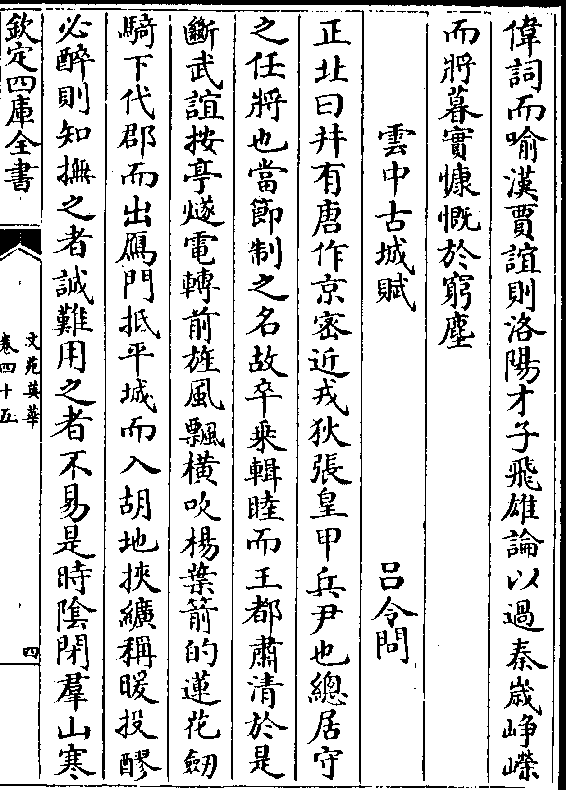 偉詞而喻漢賈誼則洛陽才子飛雄論以過秦歲崢嶸
而將暮實慷慨於窮塵
雲中古城賦 吕令問
正北曰井有唐作京宻近戎狄張皇甲兵尹也總居守
之任將也當節制之名故卒乗輯睦而王都肅清於是
斷武誼按亭燧電轉前旌風飄橫吹楊葉箭的蓮花劒
騎下代郡而出鴈門抵平城而入胡地挾纊稱暖投醪
必醉則知撫之者誠難用之者不易是時陰閉羣山寒
欽定四庫全書
文苑英華
卷四十五
四